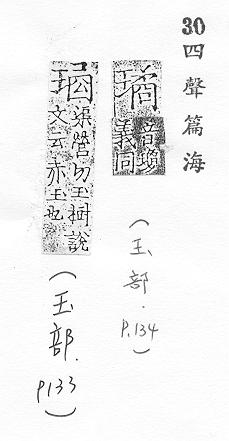 30 四聲篇海
音瓊
義同
(玉部.P.134)
渠營切玉樹說
文云赤玉也
(玉部.P133)